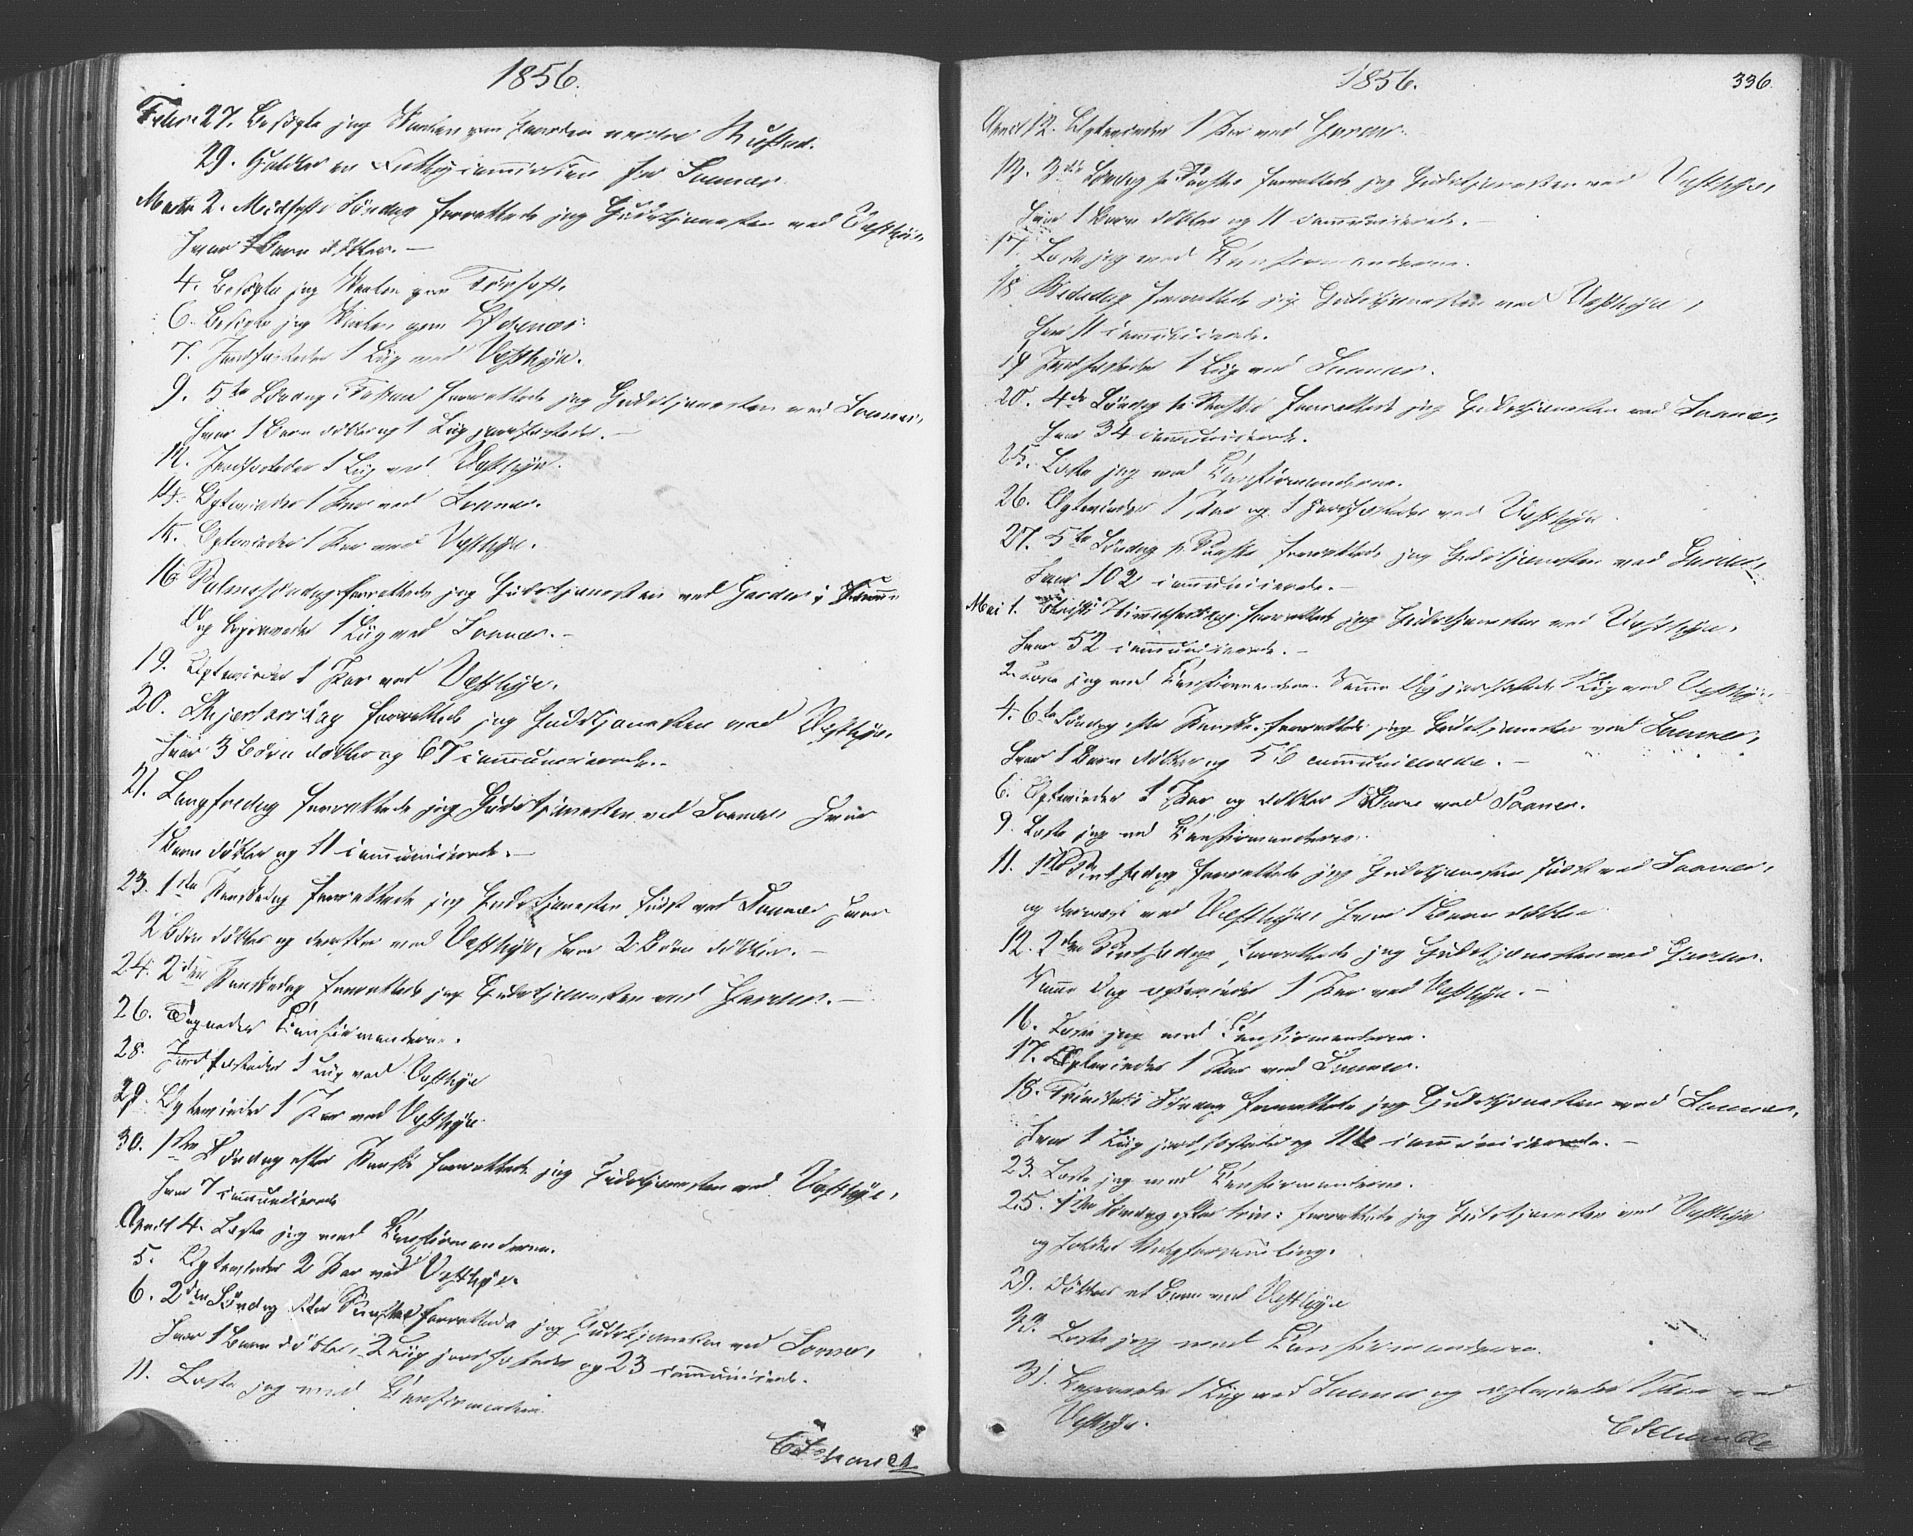 1856.
Febr. 27. Besøgte jeg Skolen paa Gaarden nedre Rustad.
29. Holdtes en Fattigcommission for Sannær.
Marts 2. Midfaste Søndag forrettede jeg Gudstjenesten ved Vestbye,
hvor 1 Barn døbtes. —
4. Besøgte jeg Skolen paa
6. Besøgte jeg Skolen paa
7. Jordfæstedes 1 Liig ved Vestbye.
9. 5te Søndag i Fasten forrettede jeg Gudstjenesten ved Sonner,
hvor 1 Barn døbtes og 1 Liig jordfæstedes. —
12. Jordfæstedes 1 Liig ved Vestbye.
14. Egteviedes 1 Par ved Sonner.
15. Egteviedes 1 Par ved Vestbye.
16. Palmesøndag forrettede jeg Gudstjenesten ved Garder; samme
Dag begravedes 1 Liig ved Sonner. —
19. Egteviedes 1 Par ved Vestbye.
20. Skjertorsdag forrettede jeg Gudstjenesten ved Vestbye,
hvor 3 Børn døbtes og 67 communicerede. —
21. Langfredag forrettede jeg Gudstjenesten ved Sonner, hvor
1 Barn døbtes og 11 communicerede. —
23. 1ste Paaskedag forrettede jeg Gudstjenesten først ved Sonner hvor
2 Børn døbtes og derefter ved Vestbye, hvor 2 Børn døbtes. —
24. 2den Paaskedag forrettede jeg Gudstjenesten ved Garder. —
26. Confirmanderne.
28. Jordfæstedes 1 Liig ved Vestbye
29. Egteviedes 1 Par ved Vestbye.
30. 1ste Søndag efter Paaske forrettede jeg Gudstjenesten ved Vestbye,
hvor 7 communicerede
April 4. Læste jeg med Confirmanderne.
5. Egteviedes 2 Par ved Vestbye.
6. 2den Søndag efter Paaske forrettede jeg Gudstjenesten ved Sonner,
hvor 1 Barn døbtes, 2 Liig jordfæstedes og 23 communicerede.
11. Læste jeg med Confirmanderne.
1856.
336
April 12. Egteviedes 1 Par ved Garder.
13. 3die Søndag e. Paaske forrettede jeg Gudstjenesten ved Vestbye,
hvor 1 Barn døbtes og 11 communicerede. —
17. Læste jeg med Confirmanderne.
18. Bededag forrettede jeg Gudstjenesten ved Vestbye,
hvor 11 communicerede.
19. Jordfæstedes 1 Liig ved Sonner.
20. 4de Søndag e. Paaske forrettede jeg Gudstjenesten ved Sonner,
hvor 34 communicerede.
25. Læste jeg med Confirmanderne.
26. Egteviedes 1 Par og 1 jordfæstedes ved Vestbye.
27. 5te Søndag e. Paaske forrettede jeg Gudstjenesten ved Garder,
hvor 102 communicerede. —
Mai 1. Christi Himmelfartsdag forrettede jeg Gudstjenesten ved Vestbye,
hvor 52 communicerede. —
2. Læste jeg med Confirmanderne. Samme Dag jordfæstedes 1 Liig ved Vestbye.
4. 6te Søndag efter Paaske forrettede jeg Gudstjenesten ved Sonner,
hvor 1 Barn døbtes og 56 communicerede. —
6. Egteviedes 1 Par og døbtes 1 Barn ved Sonner.
9. Læste jeg med Confirmanderne.
11. 1ste Pintsedag forrettede jeg Gudstjenesten først ved Sonner,
og dernæst ved Vestbye, hvor 1 Barn døbtes.
12. 2den Pintsedag forrettede jeg Gudstjenesten ved Garder.
Samme Dag egteviedes 1 Par ved Vestbye. —
16. Læste jeg med Confirmanderne.
17. Egteviedes 1 Par ved Sonner.
18. Trinitatis Søndag forrettede jeg Gudstjenesten ved Sonner,
hvor 1 Liig jordfæstedes og communicerede. —
23. Læste jeg med Confirmanderne.
25. 1ste Søndag efter Trin: forrettede jeg Gudstjenesten ved Vestbye
og holdtes Valgforsamling.
29. Døbtes et Barn ved Vestbye
Læste jeg med Confirmanderne.
31. Begravedes 1 Liig ved Sonner og egteviedes 1 Par ved
Vestbye.